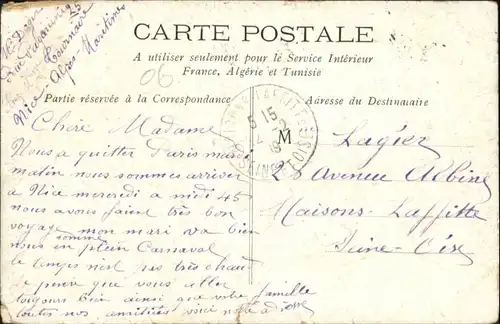 CARTE POSTALE
A utiliser seulement pour le Service Intérieur
France, Algérie et Tunisie
Partie réservée à la Correspondance
Adresse du Destinataire
Nice Alpes Maritimes
06
5 15
M
Chère Madame
Nous a quitter Paris mardi
matin nous sommes arriver
a Nice mercredi a midi 45
nous avons fait très bon
voyage mon mari va bien
nous somme en plein Carnaval
le temps n'est pas très chaud
je pense que vous aller
toujours bien ainsi que votre famille
toutes nos amitiées
Lagier
28 Avenue Albine
Maisons-Laffitte
Seine & Oise